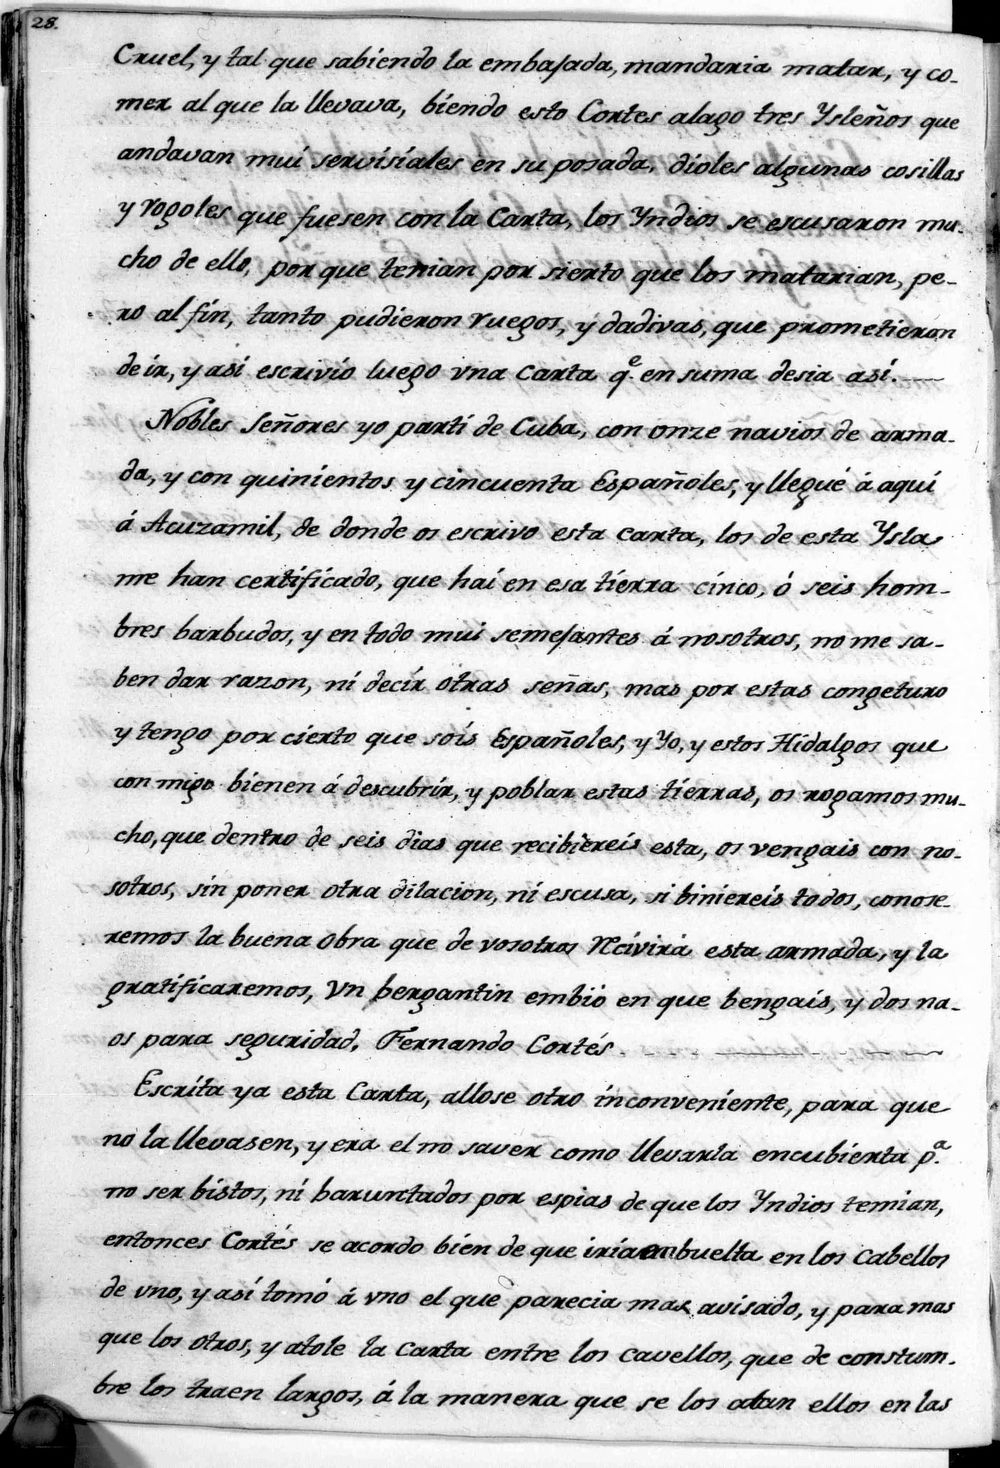 28.
Cruel, y tal que sabiendo la embajada, mandaria matar, y co-
mer al que la llevava, biendo esto Cortes alago tres Ysleños que
andavan mui servisiales en su posada, dioles algunas cosillas
y rogoles que fuesen con la Carta, los Yndios se escusaron mu-
cho de ello, por que tenian por sierto que los matarian, pe-
ro al fin, tanto pudieron ruegos, y dadivas, que prometieron
de ir, y asi escrivio luego vna Carta q.e en suma desia asi.
Nobles Señores yo parti de Cuba, con onze navios de arma-
da, y con quinientos y cincuenta Españoles, y llegué á aquí
á Acuzamil, de donde os escrivo esta carta, los de esta Ysla
me han certificado, que hai en esa tierra cinco, ó seis hom-
bres barbudos, y en todo mui semejantes á nosotros, no me sa-
ben dar razon, ni decir otras señas, mas por estas congeturo
y tengo por cierto que sois Españoles, y Yo, y estos Hidalgos que
con migo bienen á descubrir, y poblar estas tierras, os rogamos mu-
cho, que dentro de seis dias que recibiereis esta, os vengais con no-
sotros, sin poner otra dilacion, ni escusa, si biniereis todos, conose-
remos la buena obra que de vosotros recivirá esta armada, y la
gratificaremos, Vn bergantin embió en que bengais, y dos na-
os para seguridad. Fernando Cortés.
Escrita ya esta Carta, allose otro inconveniente, para que
no la llevasen, y era el no saver como llevarla encubierta p.a
no ser bistos, ni baruntados por espias de que los Yndios temian,
entonces Cortés se acordo bien de que iria embuelta en los Cabellos
de vno, y así tomó á vno el que parecia mas avisado, y para mas
que los otros, y atole la Carta entre los cavellos, que de constum-
bre los traen largos, á la manera que se los atan ellos en las